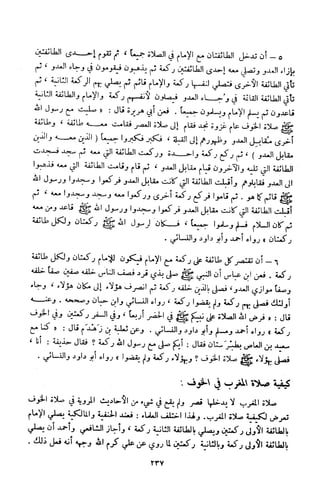 ٥ – أن تدخل الطائفتان مع الإمام في الصلاة جميعاً ، ثم تقوم إحدى الطائفتين
بإزاء العدو وتصلي معه إحدى الطائفتين ركعة ثم يذهبون فيقومون في وجاه العدو ، ثم
تأتي الطائفة الأخرى فتصلي لنفسها ركعة والإمام قائم ثم يصلي بهم الركعة الثانية ، ثم
تأتي الطائفة القائمة في وجاه العدو فيصلون لأنفسهم ركعة والإمام والطائفة الثانية
قاعدون ثم يسلم الإمام ويسلمون جميعاً . فعن أبي هريرة قال : « صليت مع رسول الله
ﷺ صلاة الخوف عام غزوة نجد فقام إلى صلاة العصر فقامت معه طائفة ، وطائفة
أخرى مقابل العدو وظهورهم إلى القبلة ، فكبر فكبروا جميعاً ( الذين معه والذين
مقابل العدو ) ، ثم ركع ركعة واحدة وركعت الطائفة التي معه ثم سجد فسجدت
الطائفة التي تليه والآخرون قيام مقابل العدو ، ثم قام وقامت الطائفة التي معه فذهبوا
الى العدو فقابلوهم وأقبلت الطائفة التي كانت مقابل العدو فركعوا وسجدوا ورسول الله
ﷺ قائم كما هو . ثم قاموا فركع ركعة أخرى وركعوا معه وسجد وسجدوا معه ، ثم
أقبلت الطائفة التي كانت مقابل العدو فركعوا وسجدوا ورسول الله ﷺ قاعد ومن معه
ثم كان السلام فسلم وسلموا جميعاً ، فكان لرسول الله ﷺ ركعتان ولكل طائفة
ركعتان » رواه أحمد وأبو داود والنسائي .
٦ – أن تقتصر كل طائفة على ركعة مع الإمام فيكون للإمام ركعتان ولكل طائفة
ركعة . فعن ابن عباس أن النبي ﷺ صلى بذي قرد فصف الناس خلفه صفين صفا خلفه
وصفا موازي العدو ، فصلى بالذين خلفه ركعة ثم انصرف هؤلاء إلى مكان هؤلاء ، وجاء
أولئك فصلى بهم ركعة ولم يقضوا ركعة » رواه النسائي وابن حبان وصححه . وعنه
قال : « فرض الله الصلاة على نبيكم ﷺ في الحضر أربعا ، وفي السفر ركعتين وفي الخوف
ركعة » رواه أحمد ومسلم وأبو داود والنسائي . وعن ثعلبة بن زهدم قال : « كنا مع
سعيد بن العاص بطبرستان فقال : أيكم صلى مع رسول الله ﷺ صلاة الخوف ؟ فقال حذيفة : أنا ،
فصلى بهؤلاء ركعة ، وبهؤلاء ركعة ولم يقضوا » رواه أبو داود والنسائي .
كيفية صلاة المغرب في الخوف :
صلاة المغرب لا يدخلها قصر ولم يقع في شيء من الأحاديث المروية في صلاة الخوف
تعرض لكيفية صلاة المغرب. ولهذا اختلف العلماء : فعند الحنفية والمالكية يصلي الإمام
بالطائفة الأولى ركعتين ويصلي بالطائفة الثانية ركعة ، وأجاز الشافعي وأحمد أن يصلي
بالطائفة الأولى ركعة وبالثانية ركعتين لما روي عن علي كرم الله وجهه أنه فعل ذلك .
٢٣٧